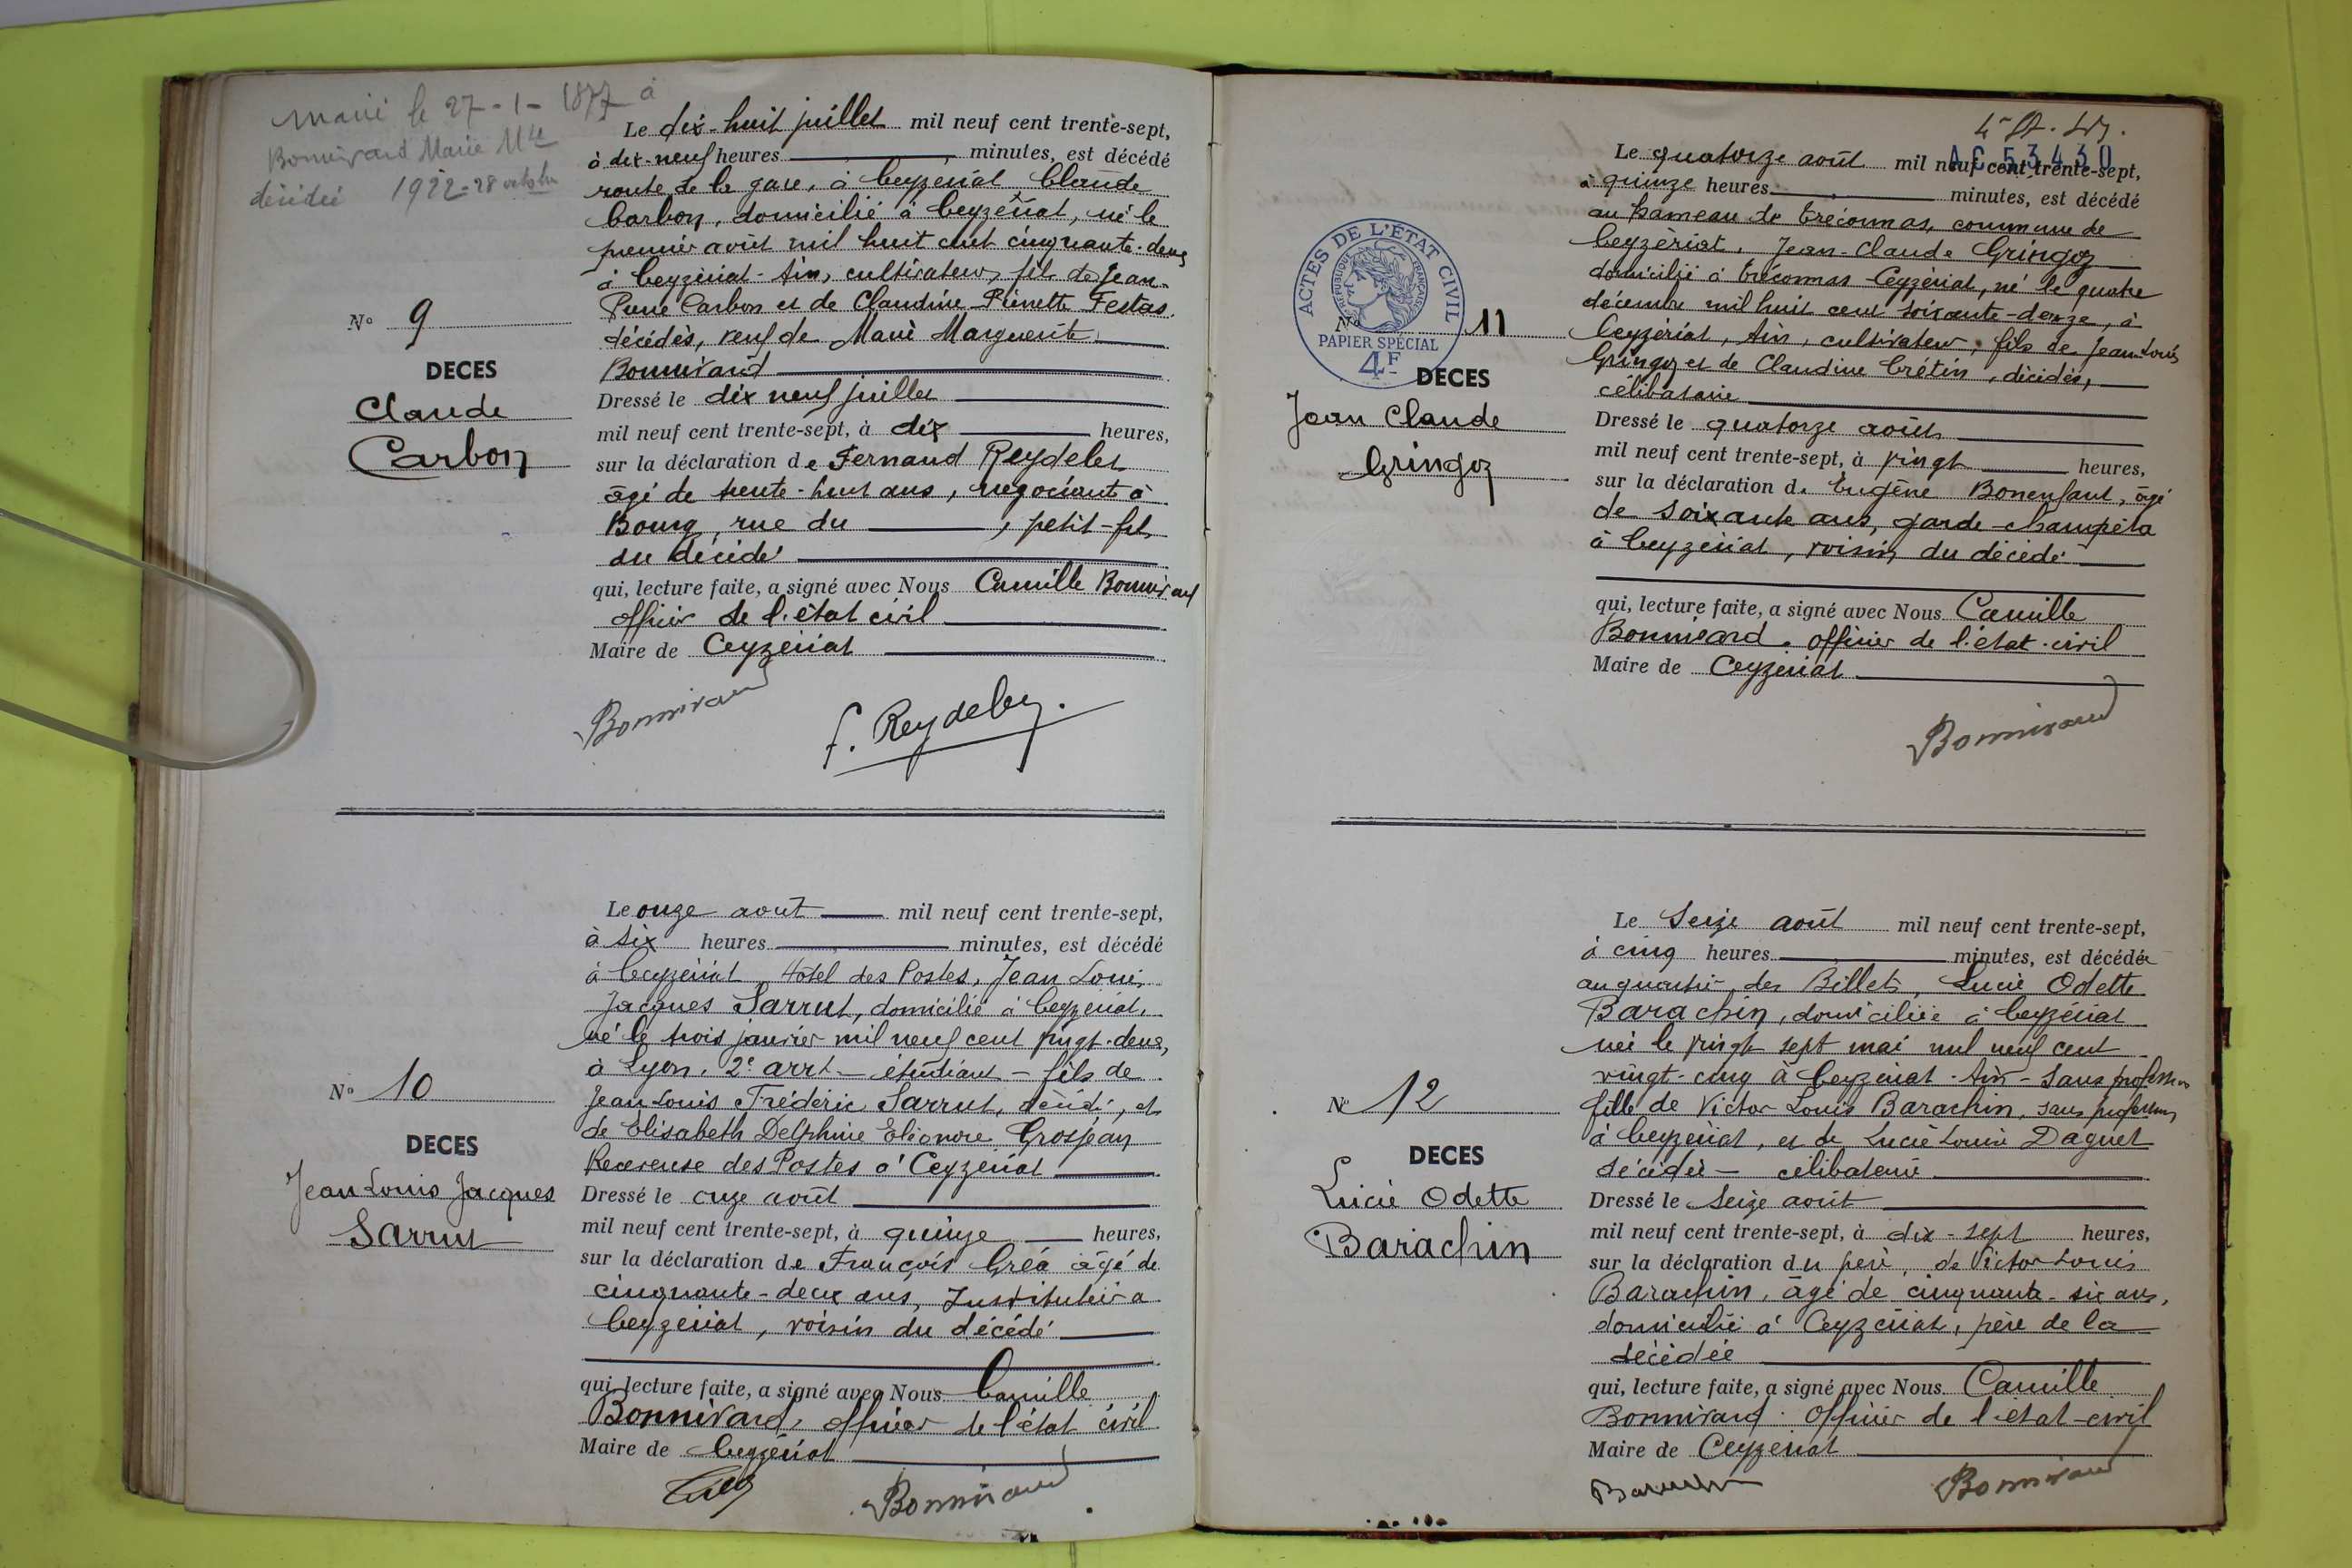 Marié le 27-1-1877 à
Bonnivard Marie Mte
décédée 1922=28 octobre
Le dix-huit juillet mil neuf cent trente-sept,
à dix-neuf heures minutes, est décédé
route de la gare, à Ceyzériat, Claude
Carbon, domicilié à Ceyzériat, né le
premier août mil huit cent cinquante-deux
à Ceyzériat-Ain, cultivateur, fils de Jean-
Pierre Carbon et de Claudine Pierrette Festas,
décédés, veuf de Marie Marguerite
Bonnivard
Nº 9
DECES
Claude
Carbon
Dressé le dix neuf juillet
mil neuf cent trente-sept, à dix heures,
sur la déclaration de Fernand Reydelet
âgé de trente-huit ans, négociant à
Bourg, rue du , petit-fils
du décédé
qui, lecture faite, a signé avec Nous Camille Bonnivard
officier de l'état civil
Maire de Ceyzériat
Bonnivard
F. Reydelet.
Le onze août mil neuf cent trente-sept,
à six heures minutes, est décédé
à Ceyzériat Hôtel des Postes, Jean Louis
Jacques Sarrut, domicilié à Ceyzériat,
né le trois janvier mil neuf cent vingt-deux,
à Lyon, 2e arrt - étudiant - fils de
Jean Louis Frédéric Sarrut, décédé, et
de Elisabeth Delphine Eléonore Grosjean
Receveuse des Postes à Ceyzériat
Nº 10
DECES
Jean Louis Jacques
Sarrut
Dressé le onze août
mil neuf cent trente-sept, à quinze heures,
sur la déclaration de François Gréa âgé de
cinquante-deux ans, Instituteur à
Ceyzériat, voisin du décédé
qui, lecture faite, a signé avec Nous Camille
Bonnivard, officier de l'état civil
Maire de Ceyzériat
Bonnivard
AC 53430
Le quatorze août mil neuf cent trente-sept,
à quinze heures minutes, est décédé
au hameau de Tréconnas, commune de
Ceyzériat, Jean-Claude Gringoz
domicilié à Tréconnas-Ceyzériat, né le quatre
décembre mil huit cent soixante-douze, à
Ceyzériat, Ain, cultivateur, fils de Jean Louis
Gringoz et de Claudine Crétin, décédés,
célibataire
ACTES DE L'ÉTAT CIVIL
RÉPUBLIQUE FRANÇAISE
PAPIER SPÉCIAL
4F
Nº 11
DECES
Jean Claude
Gringoz
Dressé le quatorze août
mil neuf cent trente-sept, à vingt heures,
sur la déclaration de Eugène Bonenfant, âgé
de soixante ans, garde-champêtre
à Ceyzériat, voisin du décédé
qui, lecture faite, a signé avec Nous Camille
Bonnivard, officier de l'état-civil
Maire de Ceyzériat
Bonnivard
Le Seize août mil neuf cent trente-sept,
à cinq heures minutes, est décédée
au quartier des Billets, Lucie Odette
Barachin, domiciliée à Ceyzériat
née le vingt sept mai mil neuf cent
vingt-cinq à Ceyzériat-Ain - Sans profession
fille de Victor Louis Barachin, sans profession
à Ceyzériat, et de Lucie Louise Daguet
décédée - célibataire
Nº 12
DECES
Lucie Odette
Barachin
Dressé le Seize août
mil neuf cent trente-sept, à dix-sept heures,
sur la déclaration du père, de Victor Louis
Barachin, âgé de cinquante-six ans,
domicilié à Ceyzériat, père de la
décédée
qui, lecture faite, a signé avec Nous Camille
Bonnivard. Officier de l'état-civil
Maire de Ceyzériat
Barachin
Bonnivard